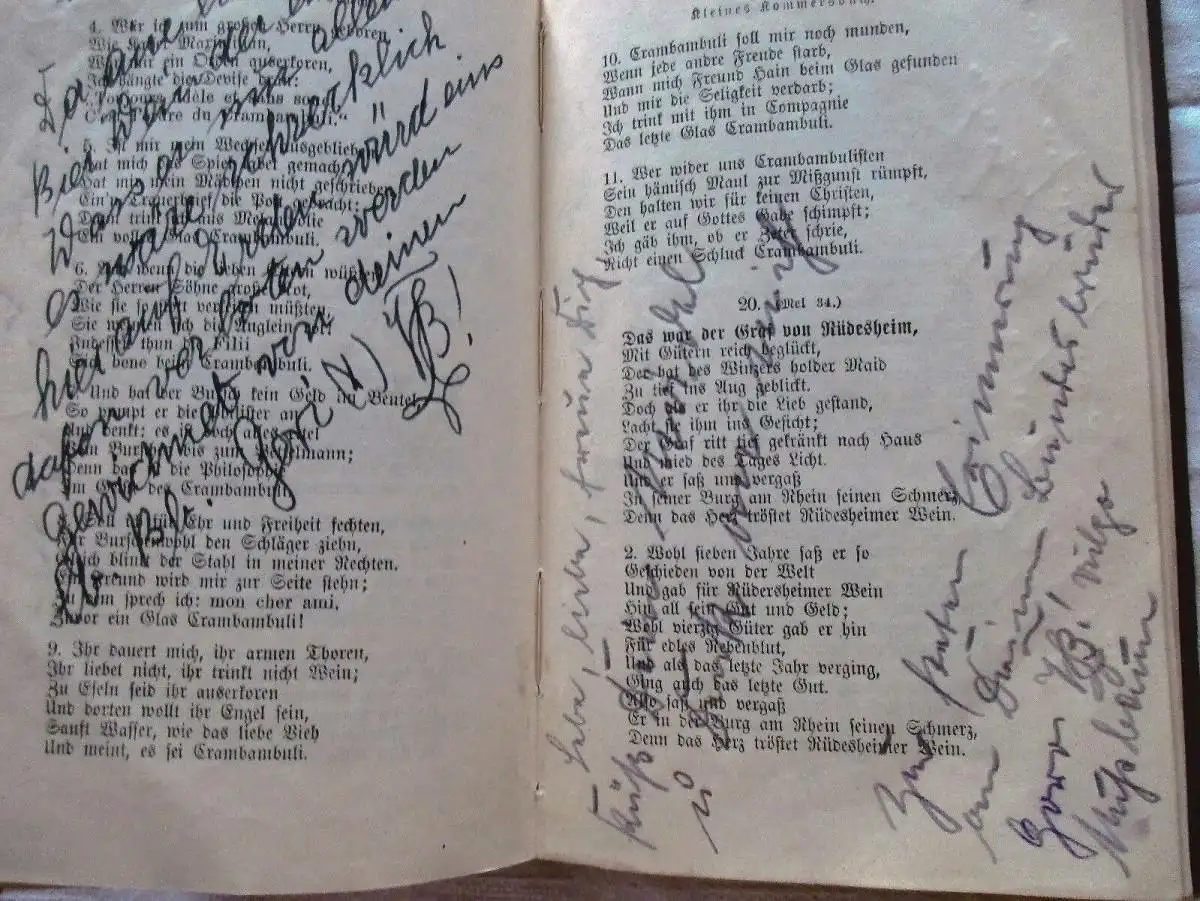 4. Wär ich zum großen Herrn geboren
Wie Kaiser Maximilian,
Wär mir ein Orden auserkoren,
Ich hängte die Devise dran:
5. Ist mir mein Wechsel ausgeblieben,
Hat mich das Spiel labet gemacht,
Hat mir mein Mädchen nicht geschrieben,
Ein'n Trauerbrief die Post gebracht:
Dann trink ich aus Melancholie
Ein volles Glas Crambambuli.
Der Herren Söhne große Not,
Wie sie so oft verkeilen müßten,
Indessen thun die Filii
Sich bene beim Crambambuli.
Und hat der Bursch kein Geld im Beutel,
So pumpt er die Philister an
Und denkt: es ist doch alles eitel
Vom Burschen bis zum Bettelmann;
Denn das ist die Philosophie
Im Geist des Crambambuli.
Soll ich für Ehr und Freiheit fechten,
Für Burschenwohl den Schläger ziehn,
Gleich blinkt der Stahl in meiner Rechten,
Ein Freund wird mir zur Seite stehn;
Zu dem sprech ich: mon cher ami,
Zuvor ein Glas Crambambuli!
9. Ihr dauert mich, ihr armen Thoren,
Ihr liebet nicht, ihr trinkt nicht Wein;
Zu Eseln seid ihr auserkoren
Und dorten wollt ihr Engel sein,
Sauft Wasser, wie das liebe Vieh
Und meint, es sei Crambambuli.
hier auf Erden würd eins
davon verboten werden
Gewidmet von deinem
Kleines Kommersbuch.
10. Crambambuli soll mir noch munden,
Wenn jede andre Freude starb,
Wann mich Freund Hain beim Glas gefunden
Und mir die Seligkeit verdarb;
Ich trink mit ihm in Compagnie
Das letzte Glas Crambambuli.
11. Wer wider uns Crambambulisten
Sein hämisch Maul zur Mißgunst rümpft,
Den halten wir für keinen Christen,
Weil er auf Gottes Gabe schimpft;
Ich gäb ihm, ob er Zeter schrie,
Nicht einen Schluck Crambambuli.
20. (Mel 34.)
Das war der Graf von Rüdesheim,
Mit Gütern reich beglückt,
Der hat des Winzers holder Maid
Zu tief ins Aug geblickt.
Doch als er ihr die Lieb gestand,
Lacht sie ihm ins Gesicht;
Der Graf ritt tief gekränkt nach Haus
Und mied des Tages Licht.
Und er saß und vergaß
In seiner Burg am Rhein seinen Schmerz,
Denn das Herz tröstet Rüdesheimer Wein.
2. Wohl sieben Jahre saß er so
Geschieden von der Welt
Und gab für Rüdersheimer Wein
Hin all sein Gut und Geld;
Wohl vierzig Güter gab er hin
Für edles Rebenblut,
Und als das letzte Jahr verging,
Ging auch das letzte Gut.
Also saß und vergaß
Er in der Burg am Rhein seinen Schmerz,
Denn das Herz tröstet Rüdesheimer Wein.
Lebe, liebe, freue Dich,
Zur steten Erinnerung
an Deinen Bundesbruder
vulgo
Nußbaum